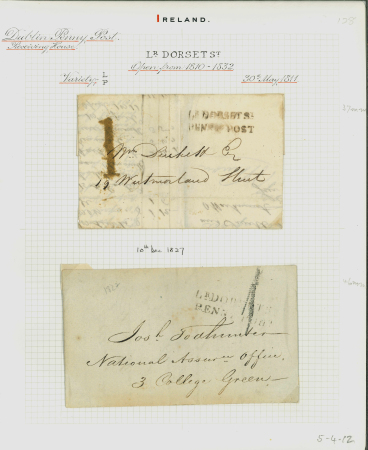 IRELAND.
Dublin Penny Post.
Receiving House
LR DORSET ST
Open from 1810-1832
Variety
30th May 1811
LR DORSET ST
PENNY POST
1
Wm Duckett Esqr
19 Westmorland Street
10th Dec 1827
1827
LR DOR
PENN
1
Josh Todhunter
National Assurce Office,
3 College Green
5-4-12